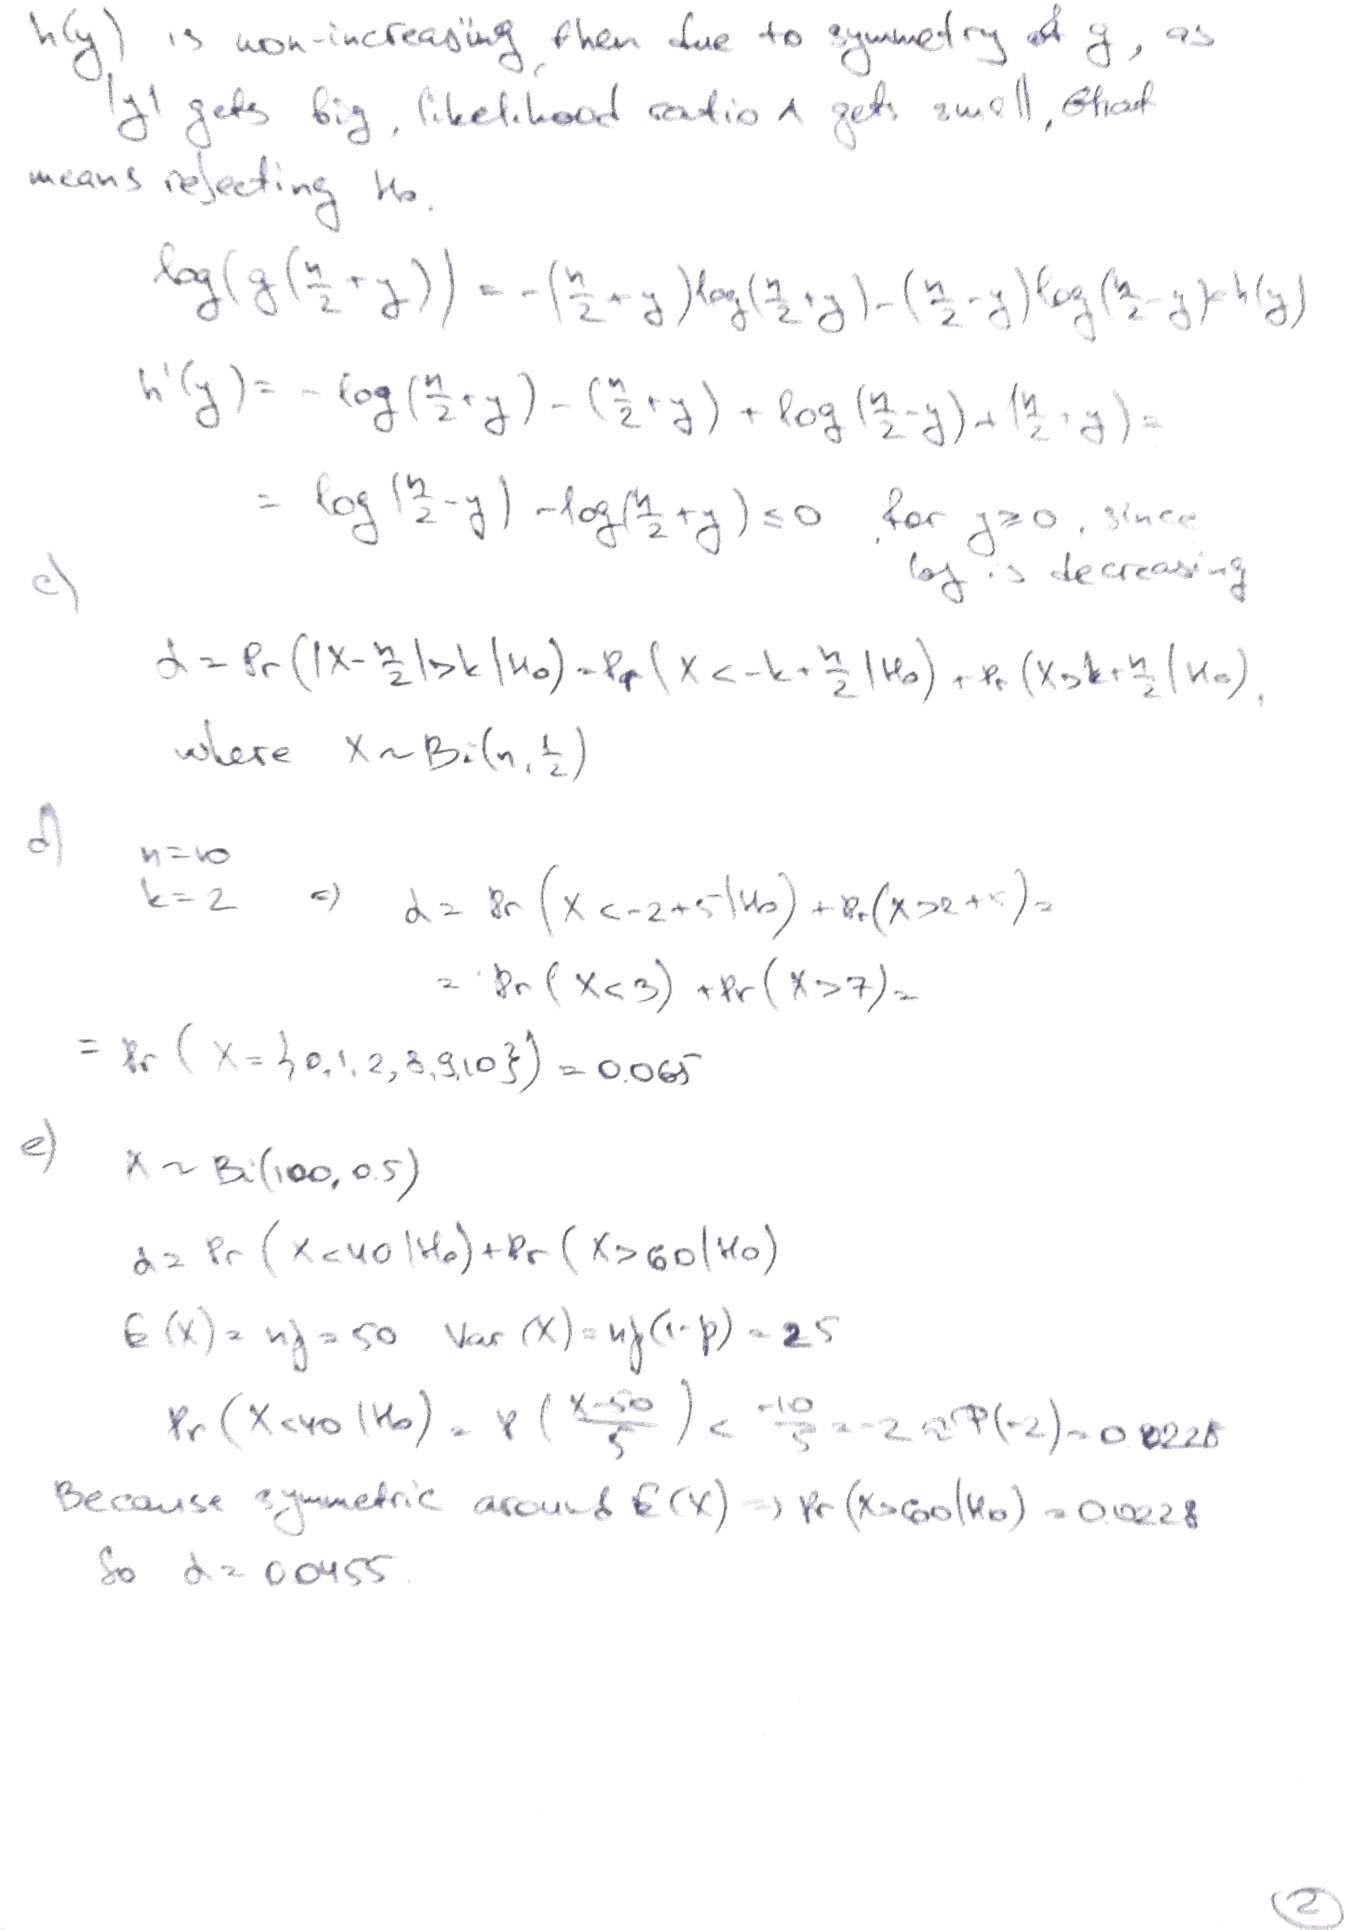 h(y) is non-increasing, then due to symmetry of g, as
|y| gets big, likelihood ratio Λ gets small, that
means rejecting H₀.
log(g(n/2 + y)) = -(n/2 + y)log(n/2 + y) - (n/2 - y)log(n/2 - y) = h(y)
h'(y) = - log(n/2 + y) - (n/2 + y) + log(n/2 - y) + (n/2 + y) =
= log(n/2 - y) - log(n/2 + y) ≤ 0 for y ≥ 0, since
log is decreasing
c)
α = Pr(|X - n/2| > k | H₀) = Pr(X < -k + n/2 | H₀) + Pr(X > k + n/2 | H₀),
where X ~ Bi(n, 1/2)
d)
n = 10
k = 2 ⇒ α = Pr(X < -2 + 5 | H₀) + Pr(X > 2 + 5) =
= Pr(X < 3) + Pr(X > 7) =
= Pr(X = {0, 1, 2, 8, 9, 10}) = 0.065
e)
X ~ Bi(100, 0.5)
α = Pr(X < 40 | H₀) + Pr(X > 60 | H₀)
E(X) = np = 50 Var(X) = np(1-p) = 25
Pr(X < 40 | H₀) = P((X-50)/5) < -10/5 = -2 ≈ Φ(-2) = 0.0228
Because symmetric around E(X) ⇒ Pr(X > 60 | H₀) = 0.0228
So α = 0.0455.
2